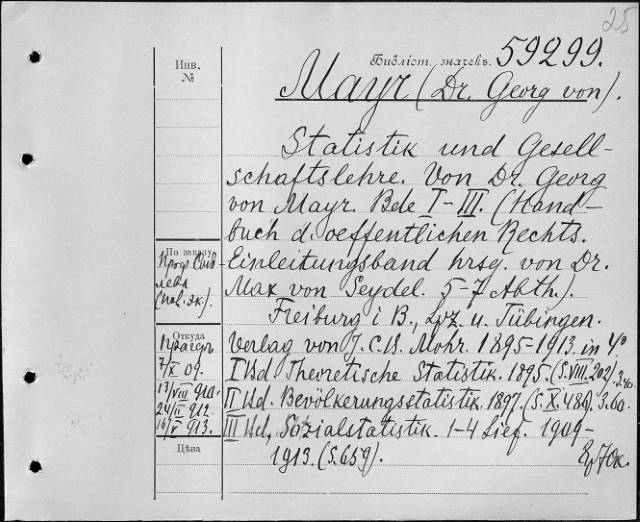 25
Инв.
№
Библіот. значекъ. 59299.
Mayr (Dr. Georg von).
Statistik und Gesell-
schaftslehre. Von Dr. Georg
von Mayr. Bde I-III. (Hand-
buch d. oeffentlichen Rechts.
Einleitungsband hrsg. von Dr.
Max von Seydel. 5-7 Abth.).
Freiburg i B., Lpz. u. Tübingen.
Verlag von J. C. B. Mohr. 1895-1913. in 4°
I Bd. Theoretische Statistik. 1895. (S. VIII. 202)
II Bd. Bevölkerungsstatistik. 1897. (S. X. 486). 3.60.
III Bd. Sozialstatistik. 1-4 Lief. 1909-
1913. (S. 659).
По заказу
Проф.
Откуда
7/X 09.
13/VIII 910.
24/II 912.
16/X 913.
Цѣна